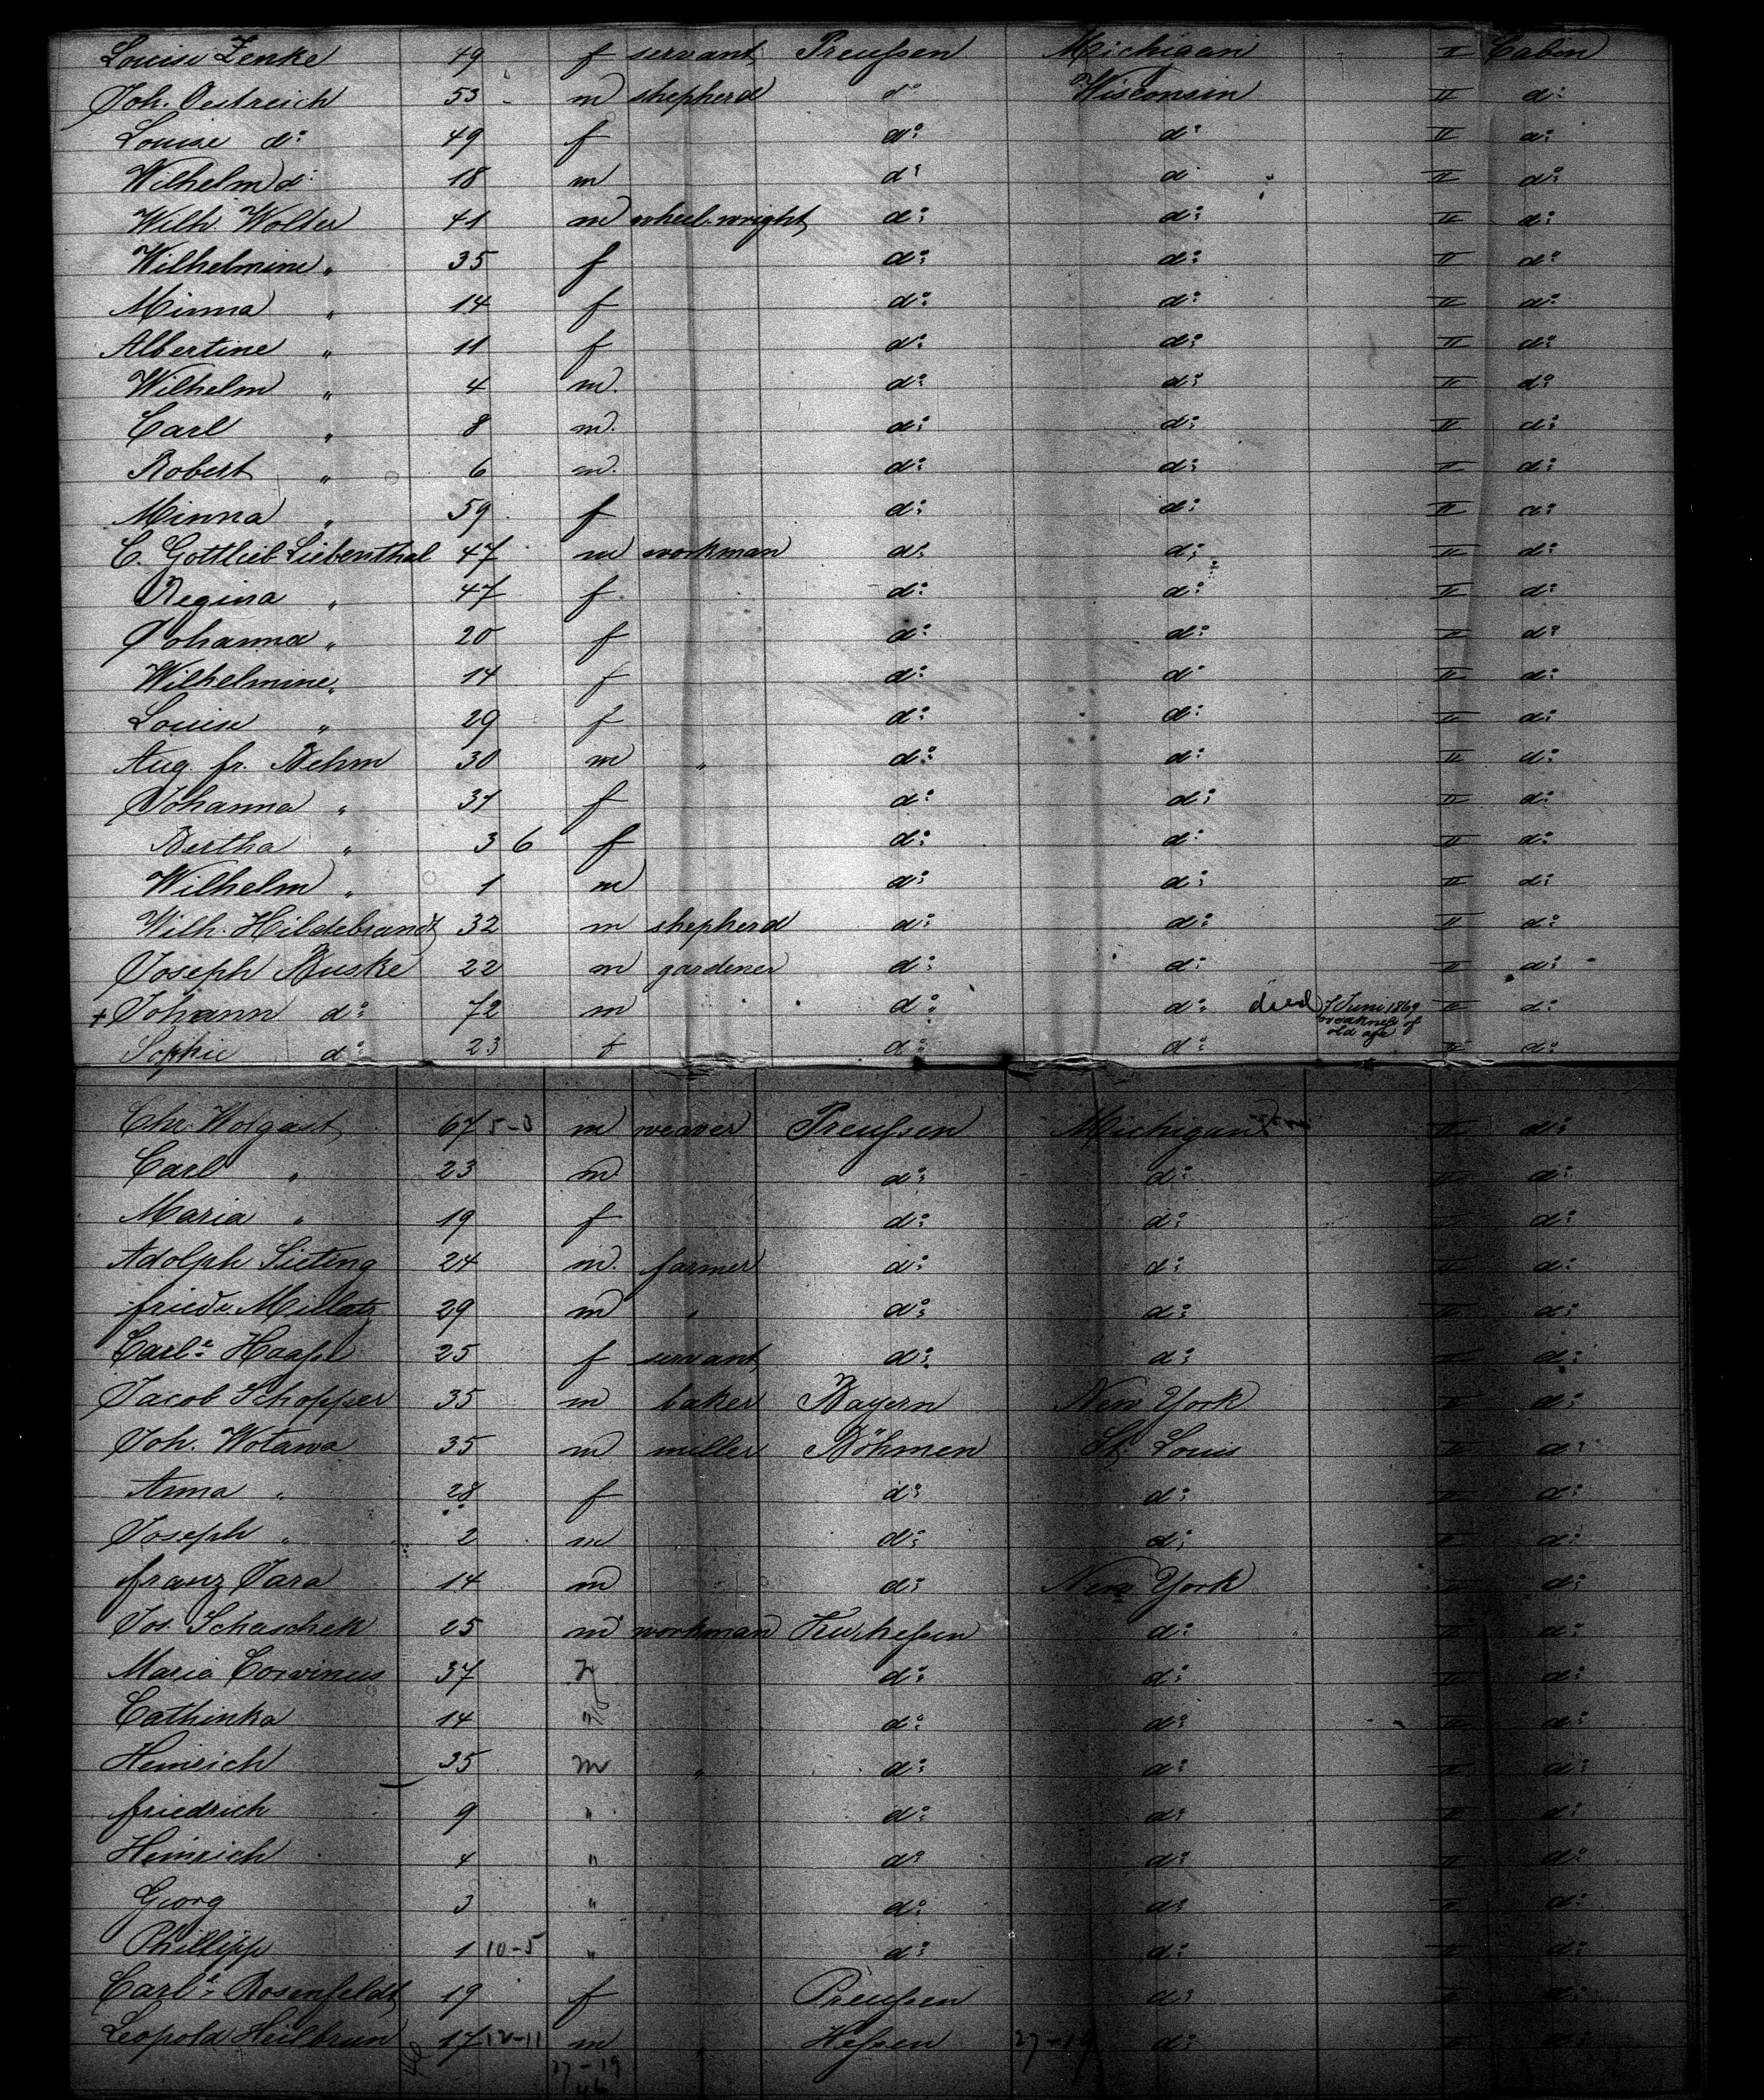 Louise Zenke 49 f servant Preußen Michigan II Cabin
Joh. Oestreich 53 m shepherd do Wisconsin II do
Louise do 49 f do do II do
Wilhelm do 18 m do do II do
Wilh. Wolter 41 m wheel-wright do do II do
Wilhelmine " 35 f do do II do
Minna " 14 f do do II do
Albertine " 11 f do do II do
Wilhelm " 4 m. do do II do
Carl " 8 m. do do II do
Robert " 6 m. do do II do
Minna " 59 f do do II do
C. Gottlieb Liebenthal 47 m workman do do II do
Regina " 47 f do do II do
Johanna " 20 f do do II do
Wilhelmine " 14 f do do II do
Louise " 29 f do do II do
Aug. fr. Behm 30 m " do do II do
Johanna " 31 f do do II do
Bertha " 3 6 f do do II do
Wilhelm " 1 m do do II do
Wilh. Hildebrandt 32 m shepherd do do II do
Joseph Buske 22 m gardener do do II do
+ Johann do 72 m do do died 7 Juni 1869 weakneß of old age II do
Sophie do 23 f do do II do
Chr. Wolgast 67 5-3 m weaver Preußen Michigan II do
Carl " 23 m. do do II do
Maria " 19 f do do II do
Adolph Sieting 24 m. farmer do do II do
friedr. Millatz 29 m " do do II do
Carl.e Haaße 25 f servant do do II do
Jacob Schopper 35 m baker Bayern New York II do
Joh. Wotawa 35 m miller Böhmen St Louis II do
Anna " 28 f do do II do
Joseph " 2 m do do II do
franz Jara 14 m do New York II do
Jos. Schaschek 25 m workman Kurheßen do II do
Maria Corvinus 37 f do do II do
Cathinka 14 " do do II do
Heinrich 35 m " do do II do
friedrich 9 " do do II do
Heinrich 4 " do do II do
Georg 3 " do do II do
Phillipp 1 10-5 " do do II do
Carl.e Rosenfeldt 19 f Preußen do II do
Leopold Heilbrun 17 12-11 m " Heßen 27-19 do II do
46 27-19
46